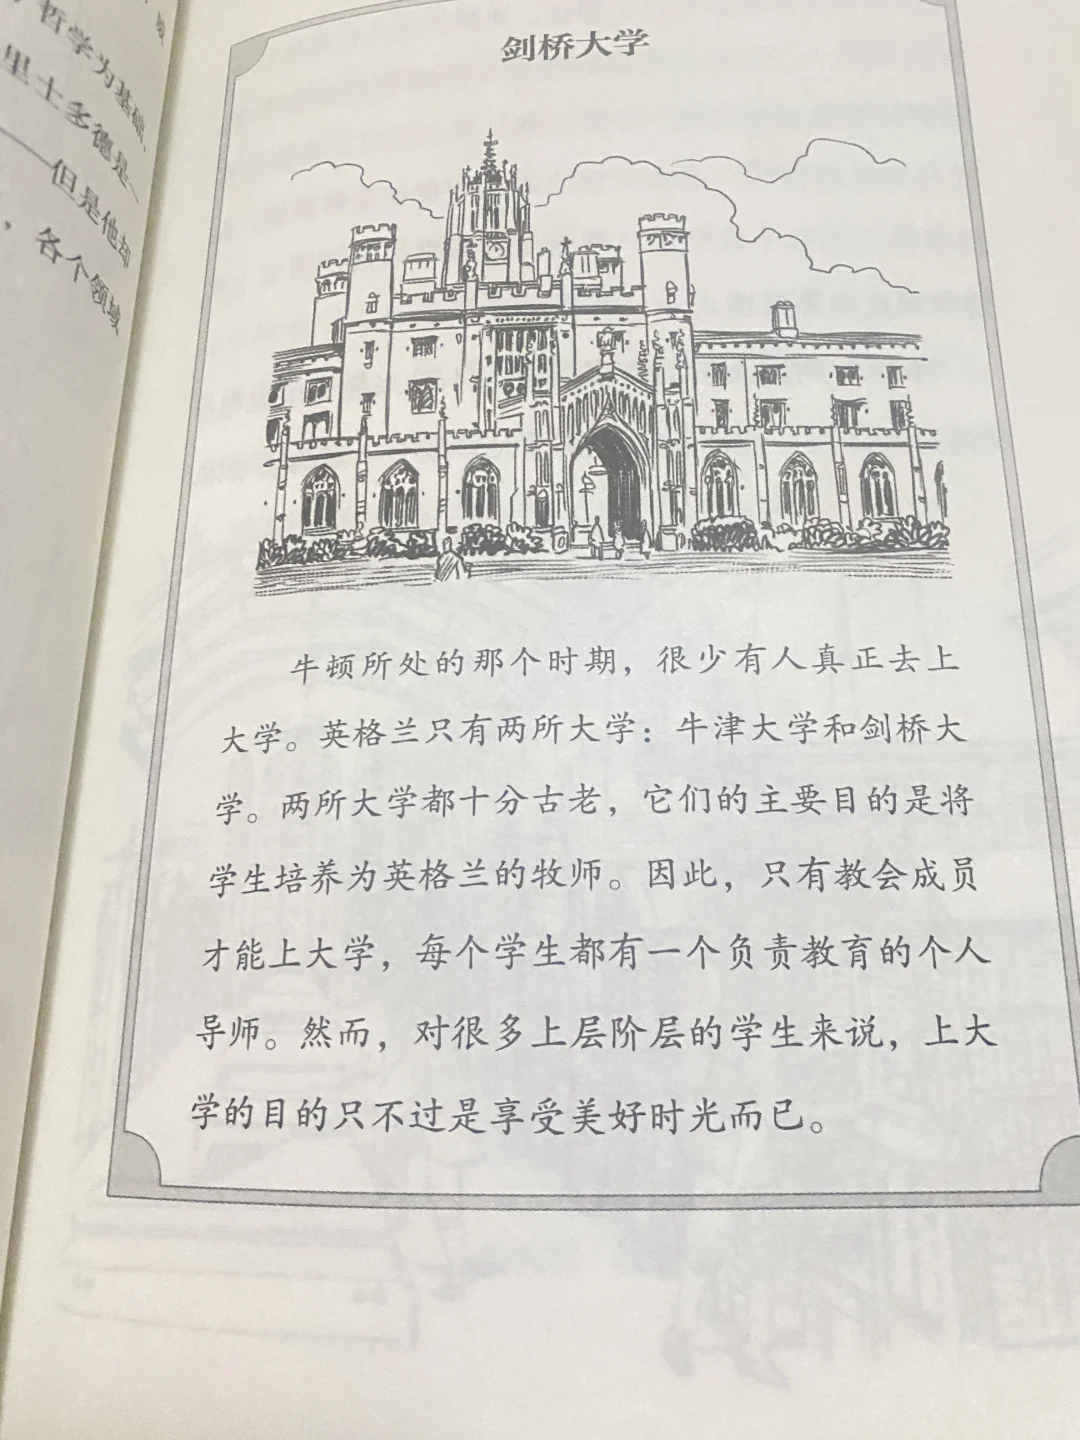 哲学为基础，
里士多德是一
——但是他却
，各个领域
剑桥大学
牛顿所处的那个时期，很少有人真正去上
大学。英格兰只有两所大学：牛津大学和剑桥大
学。两所大学都十分古老，它们的主要目的是将
学生培养为英格兰的牧师。因此，只有教会成员
才能上大学，每个学生都有一个负责教育的个人
导师。然而，对很多上层阶层的学生来说，上大
学的目的只不过是享受美好时光而已。